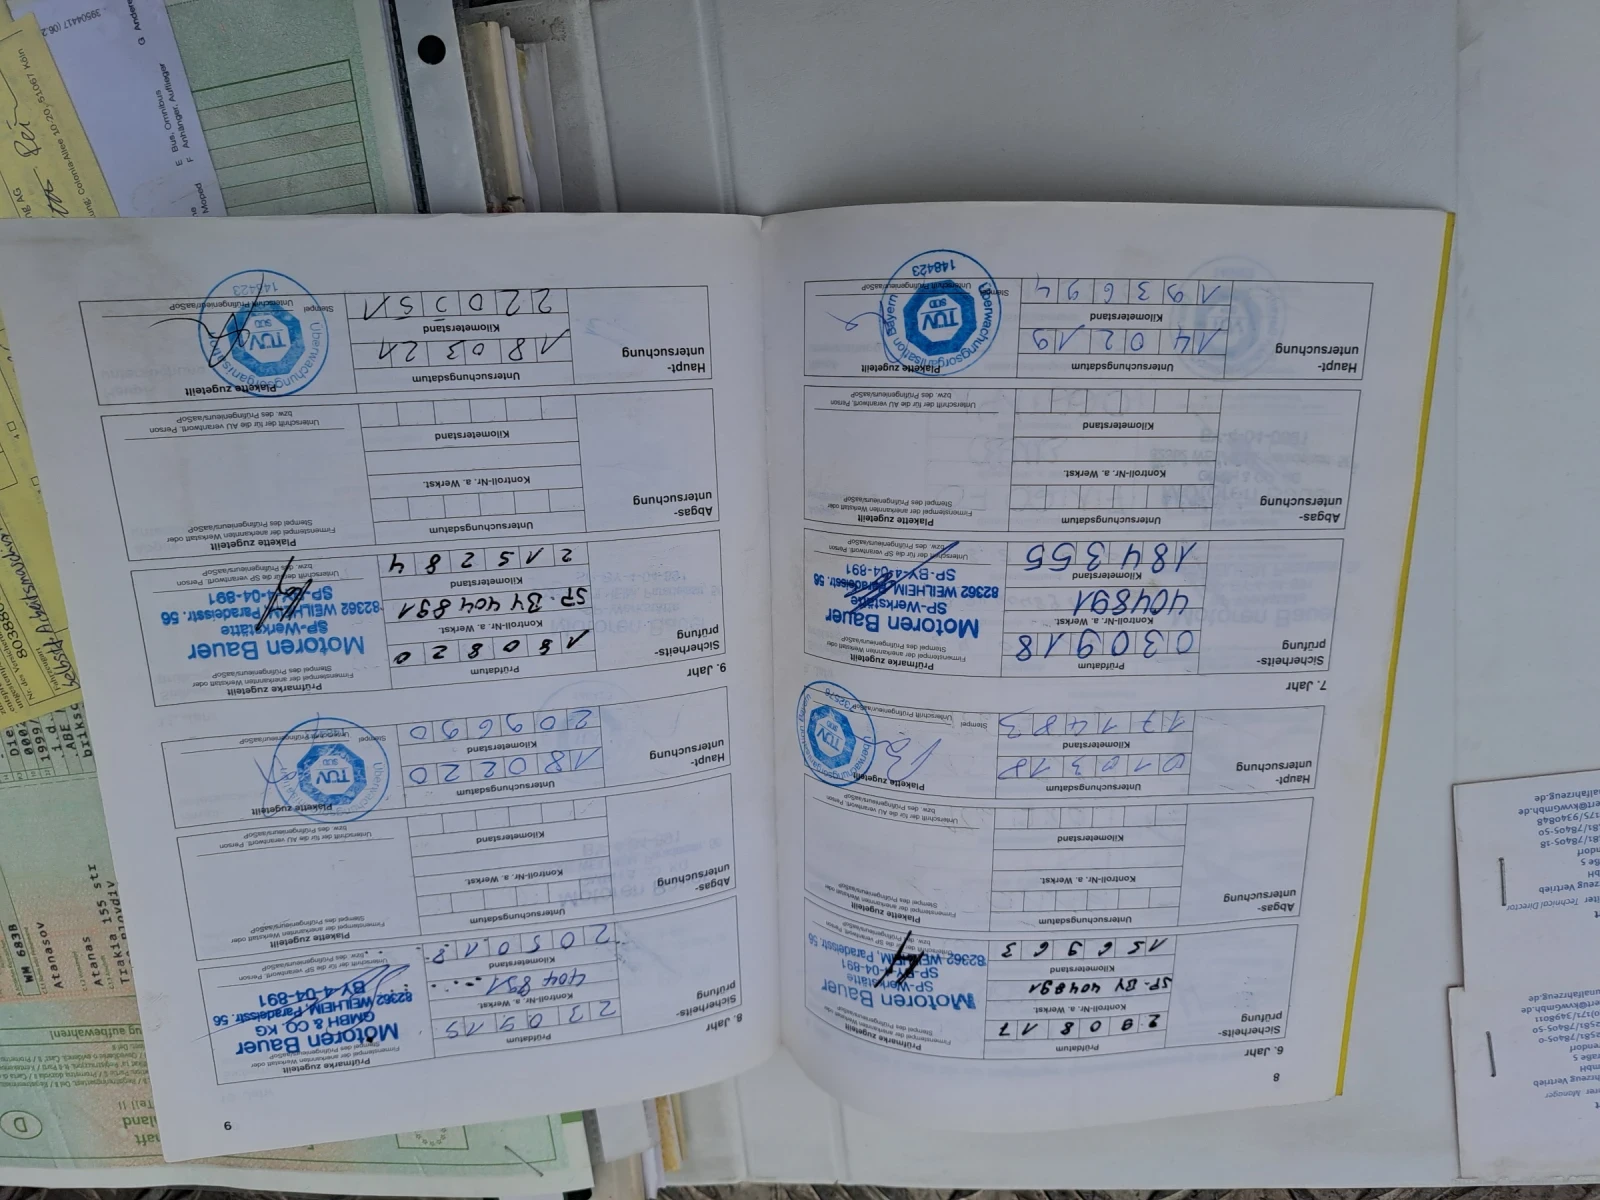 8
6. Jahr
Sicherheits-
prüfung
Prüfdatum
220817
Kontroll-Nr. a. Werkst.
SP-BY 404891
Kilometerstand
156963
Prüfmarke zugeteilt
Firmenstempel der anerkannten Werkstatt oder
Stempel des Prüfingenieurs/aaSoP
Motoren Bauer
SP-Werkstätte
SP-BY-4-04-891
82362 WEILHEIM, Paradeisstr. 56
Abgas-
untersuchung
Untersuchungsdatum
Kontroll-Nr. a. Werkst.
Kilometerstand
Plakette zugeteilt
Firmenstempel der anerkannten Werkstatt oder
Stempel des Prüfingenieurs/aaSoP
Unterschrift der für die AU verantwort. Person
bzw. des Prüfingenieurs/aaSoP
Haupt-
untersuchung
Untersuchungsdatum
010318
Kilometerstand
171483
Plakette zugeteilt
Stempel Unterschrift Prüfingenieur/aaSoP
TÜV
SÜD
7. Jahr
Sicherheits-
prüfung
Prüfdatum
030918
Kontroll-Nr. a. Werkst.
404891
Kilometerstand
184355
Prüfmarke zugeteilt
Firmenstempel der anerkannten Werkstatt oder
Stempel des Prüfingenieurs/aaSoP
Motoren Bauer
SP-Werkstätte
82362 WEILHEIM, Paradeisstr. 56
SP-BY-4-04-891
Unterschrift der für die SP verantwort. Person
bzw. des Prüfingenieurs/aaSoP
Abgas-
untersuchung
Untersuchungsdatum
Kontroll-Nr. a. Werkst.
Kilometerstand
Plakette zugeteilt
Firmenstempel der anerkannten Werkstatt oder
Stempel des Prüfingenieurs/aaSoP
Unterschrift der für die AU verantwort. Person
bzw. des Prüfingenieurs/aaSoP
Haupt-
untersuchung
Untersuchungsdatum
140219
Kilometerstand
193694
Plakette zugeteilt
Stempel Unterschrift Prüfingenieur/aaSoP
Überwachungsorganisation Bayern
TÜV
SÜD
148423
9
8. Jahr
Sicherheits-
prüfung
Prüfdatum
230919
Kontroll-Nr. a. Werkst.
404891
Kilometerstand
205018
Prüfmarke zugeteilt
Firmenstempel der anerkannten Werkstatt oder
Stempel des Prüfingenieurs/aaSoP
Motoren Bauer
GMBH & CO. KG
82362 WEILHEIM, Paradeisstr. 56
BY-4-04-891
Unterschrift der für die SP verantwort. Person
bzw. des Prüfingenieurs/aaSoP
Abgas-
untersuchung
Untersuchungsdatum
Kontroll-Nr. a. Werkst.
Kilometerstand
Plakette zugeteilt
Firmenstempel der anerkannten Werkstatt oder
Stempel des Prüfingenieurs/aaSoP
Unterschrift der für die AU verantwort. Person
bzw. des Prüfingenieurs/aaSoP
Haupt-
untersuchung
Untersuchungsdatum
180220
Kilometerstand
209690
Plakette zugeteilt
Stempel Unterschrift Prüfingenieur/aaSoP
TÜV
SÜD
9. Jahr
Sicherheits-
prüfung
Prüfdatum
180820
Kontroll-Nr. a. Werkst.
SP-BY 404891
Kilometerstand
215284
Prüfmarke zugeteilt
Firmenstempel der anerkannten Werkstatt oder
Stempel des Prüfingenieurs/aaSoP
Motoren Bauer
SP-Werkstätte
82362 WEILHEIM, Paradeisstr. 56
SP-BY-4-04-891
Unterschrift der für die SP verantwort. Person
bzw. des Prüfingenieurs/aaSoP
Abgas-
untersuchung
Untersuchungsdatum
Kontroll-Nr. a. Werkst.
Kilometerstand
Plakette zugeteilt
Firmenstempel der anerkannten Werkstatt oder
Stempel des Prüfingenieurs/aaSoP
Unterschrift der für die AU verantwort. Person
bzw. des Prüfingenieurs/aaSoP
Haupt-
untersuchung
Untersuchungsdatum
180321
Kilometerstand
220051
Plakette zugeteilt
Stempel Unterschrift Prüfingenieur/aaSoP
TÜV
SÜD
148423
E Bus, Omnibus
F Anhänger, Auflieger
Moped
WM 683B
Atanasov
Atanas
Trakia 155 str
D
Technical Director